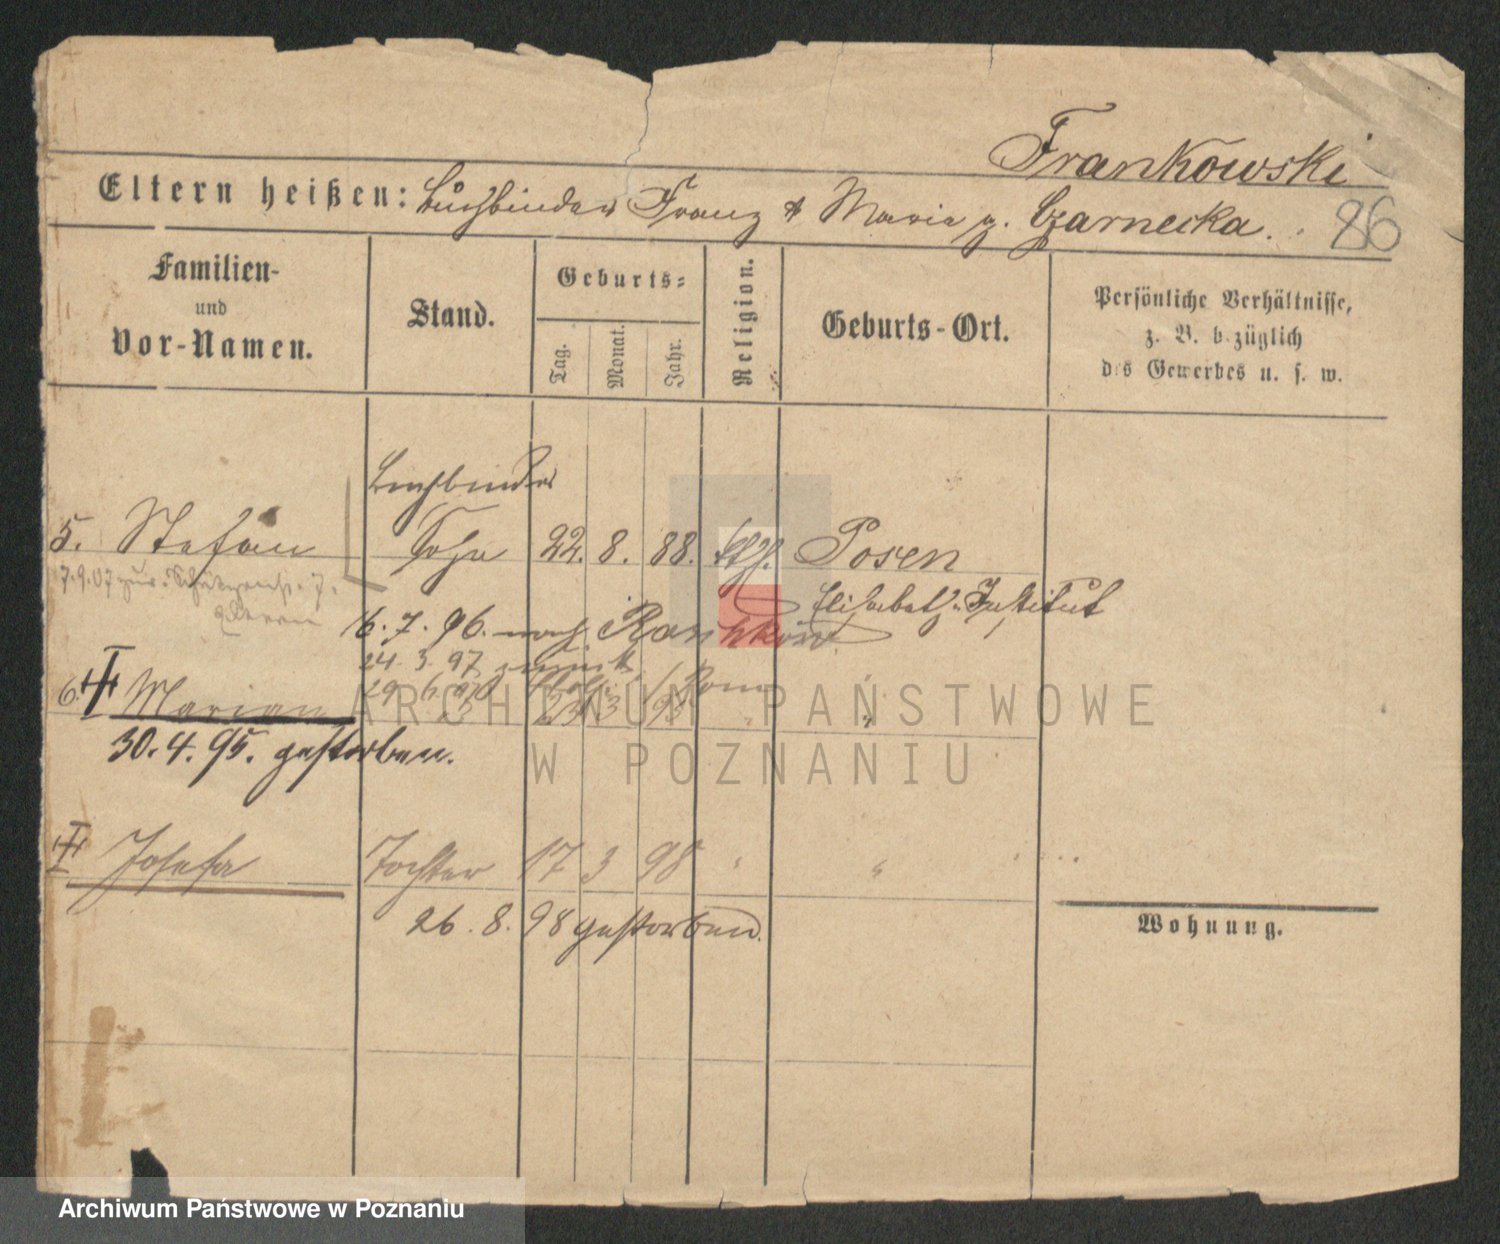 Frankowski
Eltern heißen: Buchbinder Franz & Maria g. Czarnecka.
86
Familien-
und
Vor-Namen.
Stand.
Geburts-
Tag.
Monat.
Jahr.
Religion.
Geburts-Ort.
Persönliche Verhältnisse,
z. B. bezüglich
des Gewerbes u. s. w.
Buchbinder
5. Stefan Sohn 22. 8. 88. kth. Posen
7.9.07 zur
Eltern
Elisabeth. Institut
6.7.96. nach Raschkow
24.3.97 zurück
6. Marian 23 3 93 " "
30.4.95. gestorben.
Josefa Tochter 17 3 98 " "
26.8.98 gestorben.
Wohnung.
ARCHIWUM PAŃSTWOWE
W POZNANIU
Archiwum Państwowe w Poznaniu